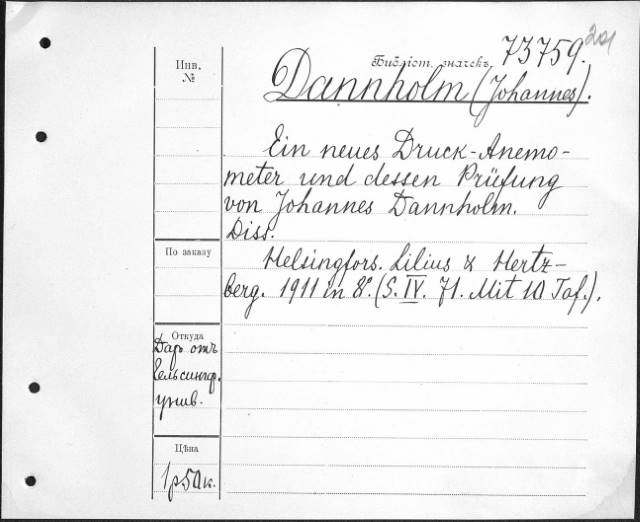 201
Инв.
№
Библіот. значекъ 73759.
Dannholm (Johannes).
Ein neues Druck-Anemo-
meter und dessen Prüfung
von Johannes Dannholm.
Diss.
По заказу
Helsingfors. Lilius & Hertz-
berg. 1911 in 8º. (S. IV. 71. Mit 10 Taf.).
Откуда
Даръ отъ
Гельсингф.
унив.
Цѣна
1р50к.